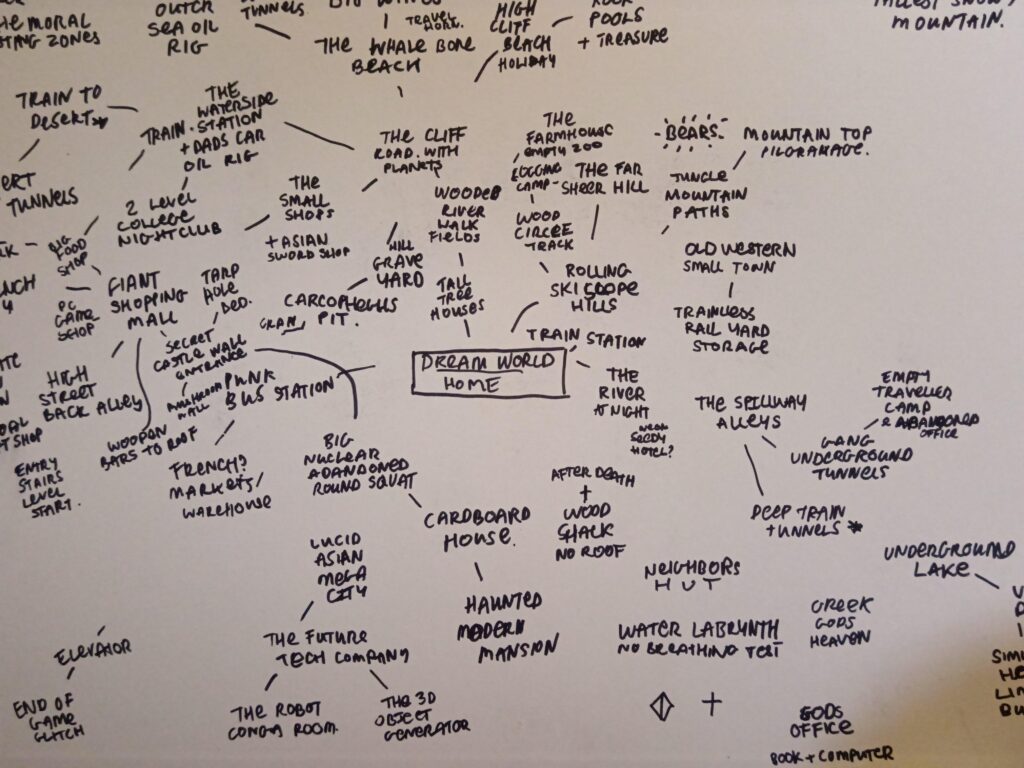 OUTCH
SEA OIL
RIG
TUNNELS
TRAVEL
THE WHALE BONE
BEACH
HIGH
CLIFF
BEACH
HOLIDAY
POOLS
+ TREASURE
MOUNTAIN.
TRAIN TO
DESERT
THE
WATERSIDE
TRAIN STATION
+ DADS CAR
OIL RIG
THE CLIFF
ROAD WITH
PLANETS
THE
FARMHOUSE
EMPTY ZOO
LOGGING
CAMP
THE FAR
SHEER HILL
BEARS
MOUNTAIN TOP
PILGRAMAGE.
TUNNELS
2 LEVEL
COLLEGE
NIGHTCLUB
THE
SMALL
SHOPS
+ ASIAN
SWORD SHOP
WOODED
RIVER
WALK
FIELDS
WOOD
CIRCLE
TRACK
JUNGLE
MOUNTAIN
PATHS
BIG
FOOD
SHOP
HILL
GRAVE
YARD
OLD WESTERN
SMALL TOWN
PC
GAME
SHOP
GIANT
SHOPPING
MALL
TARP
HOLE
BED.
PIT.
TALL
TREE
HOUSES
ROLLING
SKI SLOPE
HILLS
TRAINLESS
RAIL YARD
STORAGE
SECRET
CASTLE WALL
ENTRANCE
TRAIN STATION
DREAM WORLD
HOME
HIGH
STREET
BACK ALLEY
PUNK
BUS STATION
THE
RIVER
AT NIGHT
SEEDY
HOTEL?
THE SPILLWAY
ALLEYS
EMPTY
TRAVELLER
CAMP
& ABANDONED
OFFICE
WOODEN
BARS TO ROOF
ENTRY
STAIRS
LEVEL
START.
FRENCH?
MARKETS/
WAREHOUSE
BIG
NUCLEAR
ABANDONED
ROUND SQUAT
GANG
UNDERGROUND
TUNNELS
AFTER DEATH
+
WOOD
SHACK
NO ROOF
DEEP TRAIN
TUNNELS
CARDBOARD
HOUSE.
LUCID
ASIAN
MEGA
CITY
UNDERGROUND
LAKE
NEIGHBORS
HUT
HAUNTED
MODERN
MANSION
WATER LABYRNTH
NO BREATHING TEST
GREEK
GODS
HEAVEN
ELEVATOR
THE FUTURE
TECH COMPANY
END OF
GAME
GLITCH
THE ROBOT
CONGA ROOM
THE 3D
OBJECT
GENERATOR
GODS
OFFICE
BOOK + COMPUTER